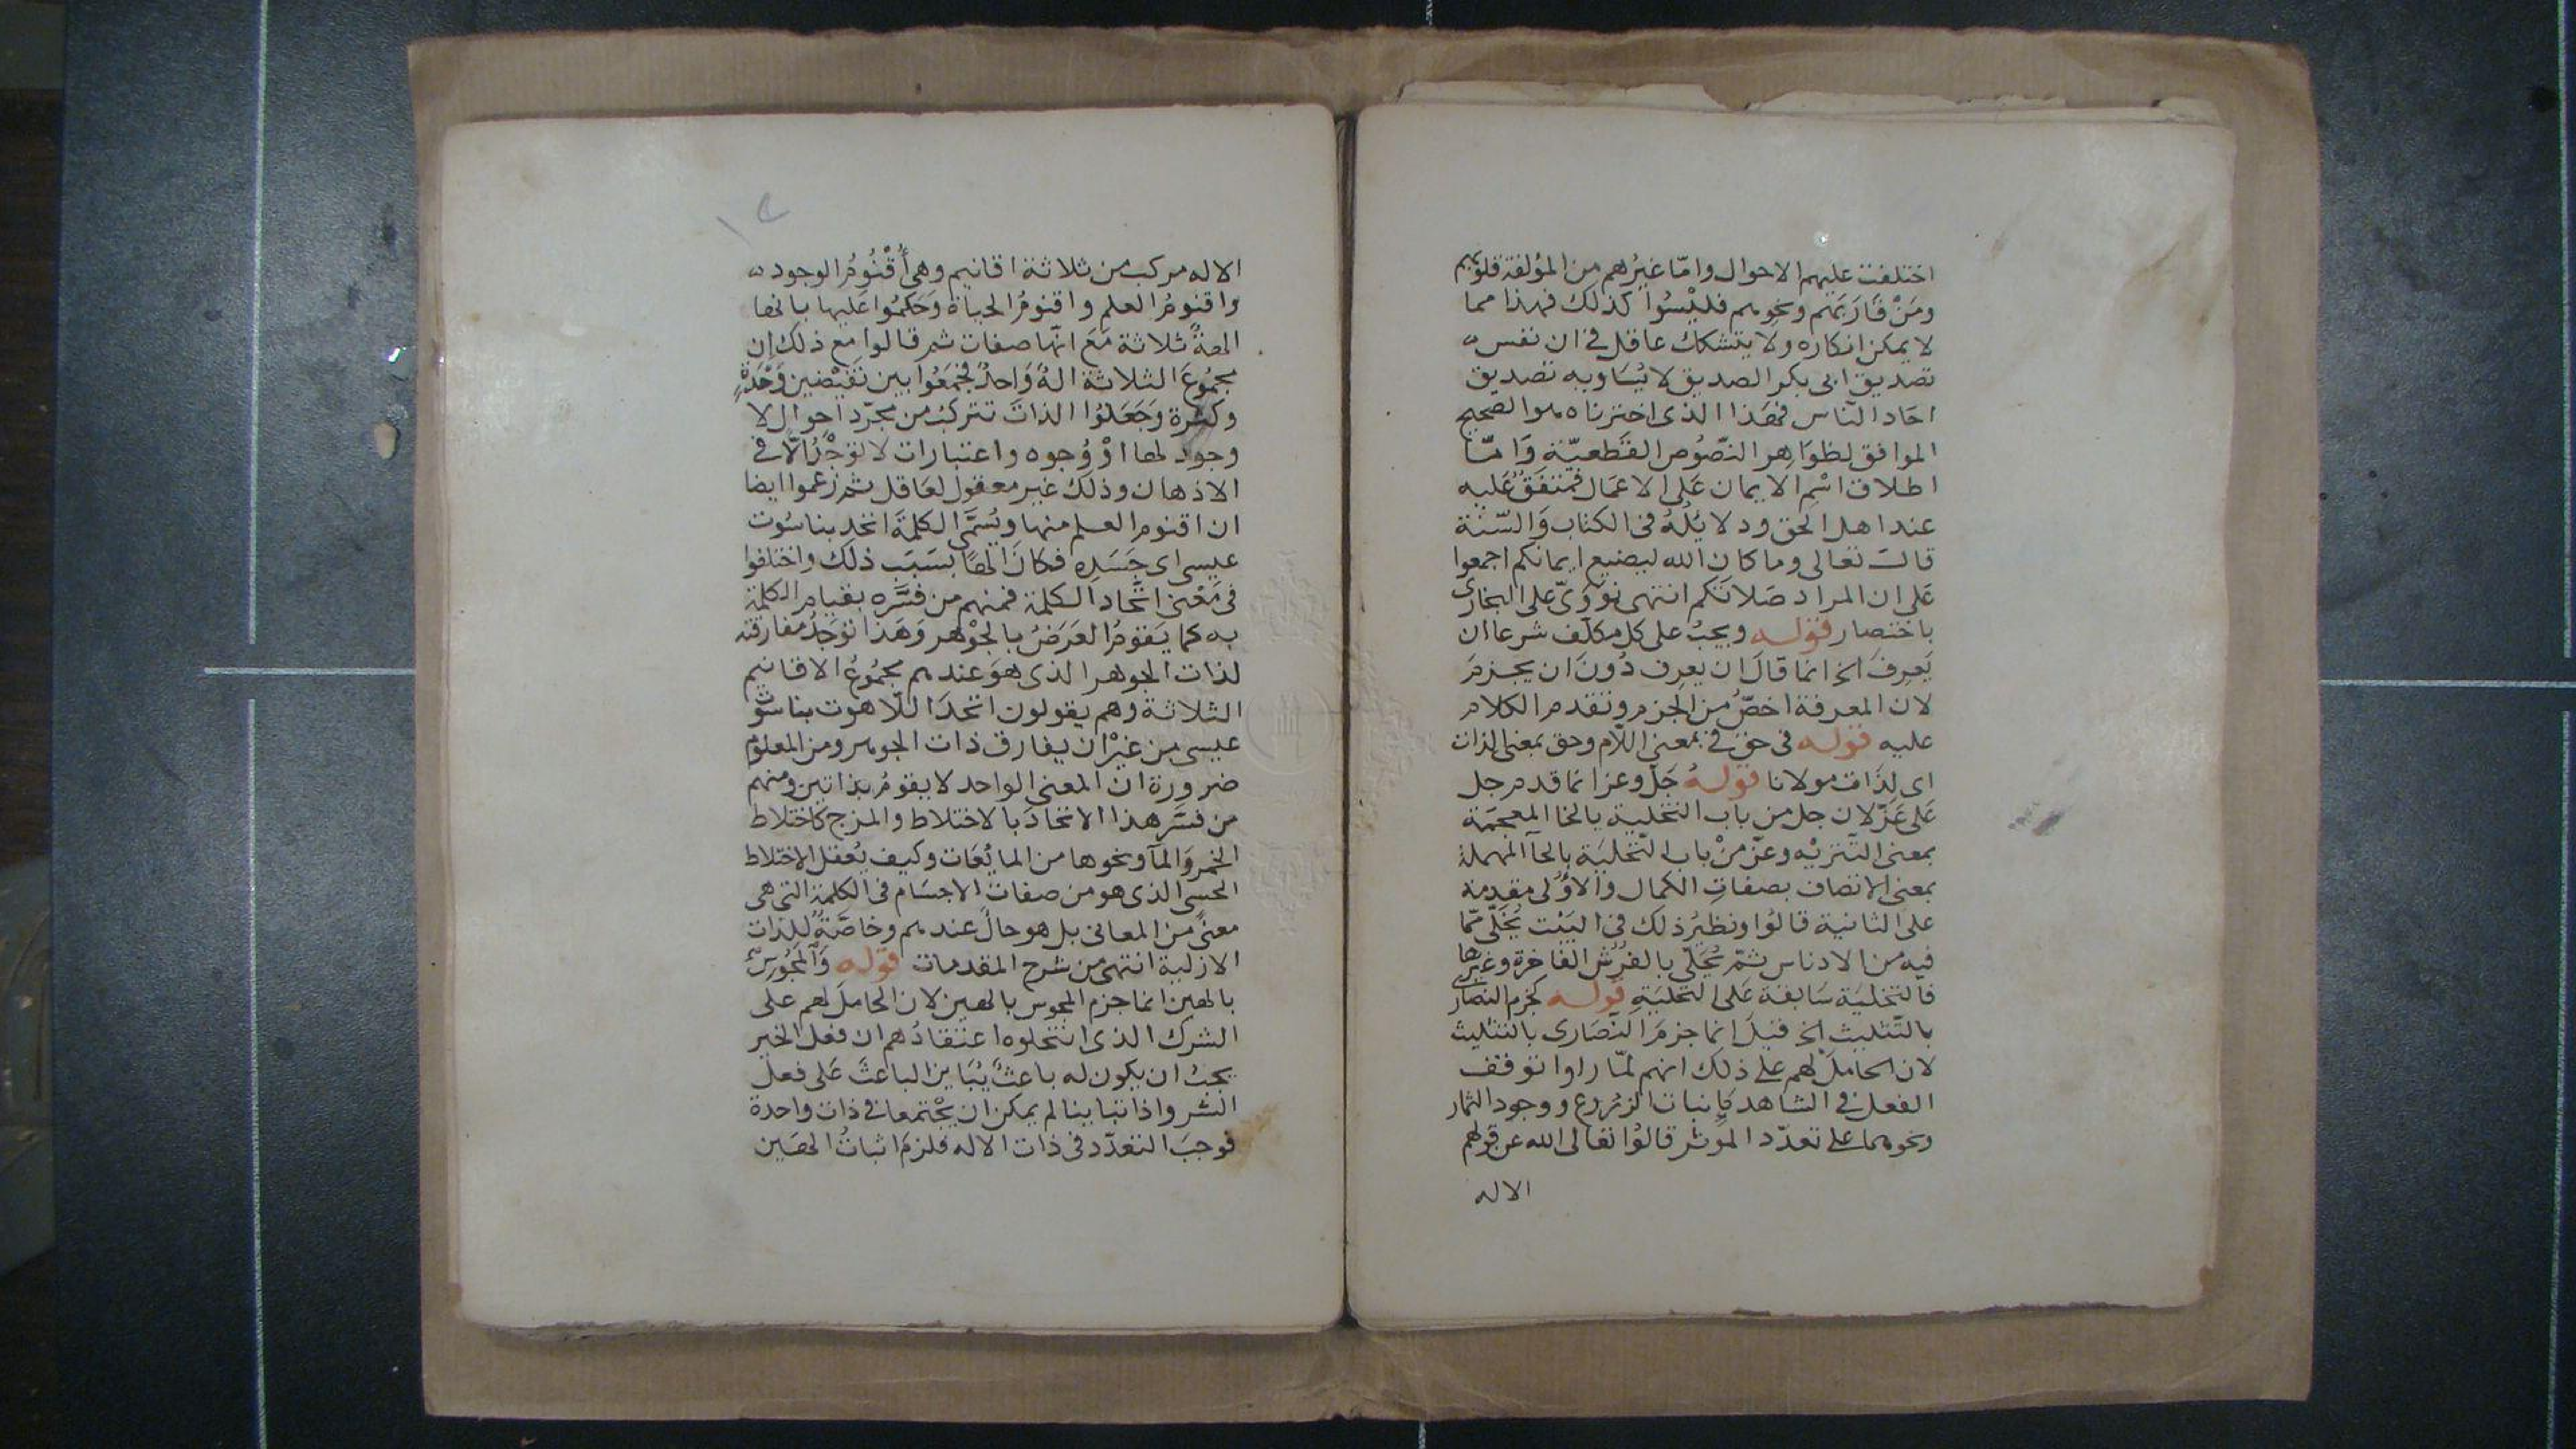 اختلفت عليهم الاحوال واما غيرهم من المؤلفة قلوبهم
ومن قاربهم ونحوهم فليسوا كذلك فهذا مما
لا يمكن انكاره ولا يتشكك عاقل في ان نفس
تصديق ابى بكر الصديق لا يساويه تصديق
احاد الناس فهذا الذى اخترناه هو الصحيح
الموافق لظواهر النصوص القطعية وامّا
اطلاق اسم الايمان على الاعمال فمتفق عليه
عند اهل الحق ودلايله فى الكتاب والسنة
قال تعالى وما كان الله ليضيع ايمانكم اجمعوا
على ان المراد صلاتكم انتهى نووى على البخارى
باختصار قوله ويجب على كل مكلف شرعا ان
يعرف الخ انما قال ان يعرف دون ان يجزم
لان المعرفة اخص من الجزم وتقدم الكلام
عليه قوله فى حق فى بمعنى اللام وحق بمعنى الذات
اى لذات مولانا قوله جل وعز انما قدم جل
على عز لان جل من باب التخلية بالخا المعجمة
بمعنى التنزيه وعز من باب التحلية بالحا المهملة
بمعنى الاتصاف بصفات الكمال والاولى مقدمة
على الثانية قالوا ونظير ذلك فى البيت يخلى مما
فيه من الادناس ثم يحلى بالفرش الفاخرة وغيرها
فالتخلية سابقة على التحلية قوله كجزم النصارى
بالتثليث الخ قيل انما جزم النصارى بالتثليث
لان الحامل لهم على ذلك انهم لما راوا توقف
الفعل فى الشاهد كانبات الزرع ووجود الثمار
ونحوهما على تعدد المؤثر قالوا تعالى الله عن قولهم
الاله
١٢
الاله مركب من ثلاثة اقانيم وهى أقنوم الوجود
واقنوم العلم واقنوم الحياة وحكموا عليها بانها
الهة ثلاثة مع انها صفات ثم قالوا مع ذلك إن
مجموع الثلاثة اله واحد فجمعوا بين نقيضين وحدة
وكثرة وجعلوا الذات تتركب من مجرد احوال لا
وجود لها او وجوه واعتبارات لا توجد الا فى
الاذهان وذلك غير معقول لعاقل ثم زعموا ايضا
ان اقنوم العلم منها ويسمى الكلمة اتحد بناسوت
عيسى اى جسده فكان الها بسبب ذلك واختلفوا
فى معنى اتحاد الكلمة فمنهم من فسره بقيام الكلمة
به كما يقوم العرض بالجوهر وهذا توجد مفارقته
لذات الجوهر الذى هو عندهم مجموع الاقانيم
الثلاثة وهم يقولون اتحد اللاهوت بناسوت
عيسى من غير ان يفارق ذات الجوهر ومن المعلوم
ضرورة ان المعنى الواحد لا يقوم بذاتين ومنهم
من فسر هذا الاتحاد بالاختلاط والمزج كاختلاط
الخمر والمآ ونحوها من المائعات وكيف يعقل الاختلاط
الحسى الذى هو من صفات الاجسام فى الكلمة التى هى
معنى من المعانى بل هو حال عندهم وخاصة للذات
الازلية انتهى من شرح المقدمات قوله والمجوس
بالهين انما جزم المجوس بالهين لان الحامل لهم على
الشرك الذى انتحلوه اعتقادهم ان فعل الخير
يجب ان يكون له باعث يباين الباعث على فعل
الشر واذا تباينا لم يمكن ان يجتمعا فى ذات واحدة
فوجب التعدد فى ذات الاله فلزم اثبات الهين